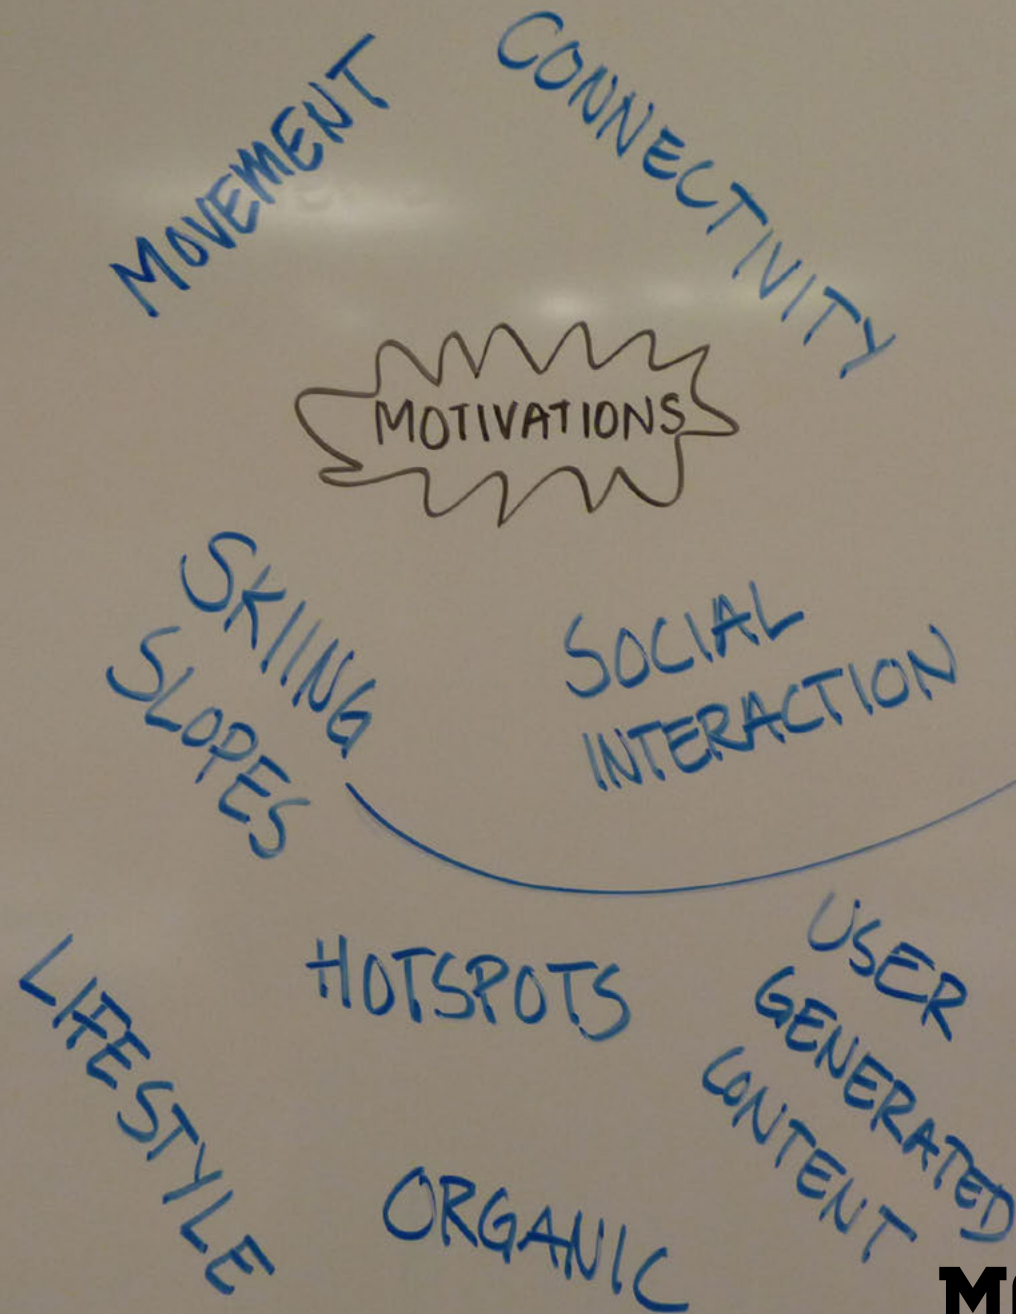 MOVEMENT
CONNECTIVITY
MOTIVATIONS
SKIING
SLOPES
SOCIAL
INTERACTION
LIFESTYLE
HOTSPOTS
USER
GENERATED
CONTENT
ORGANIC